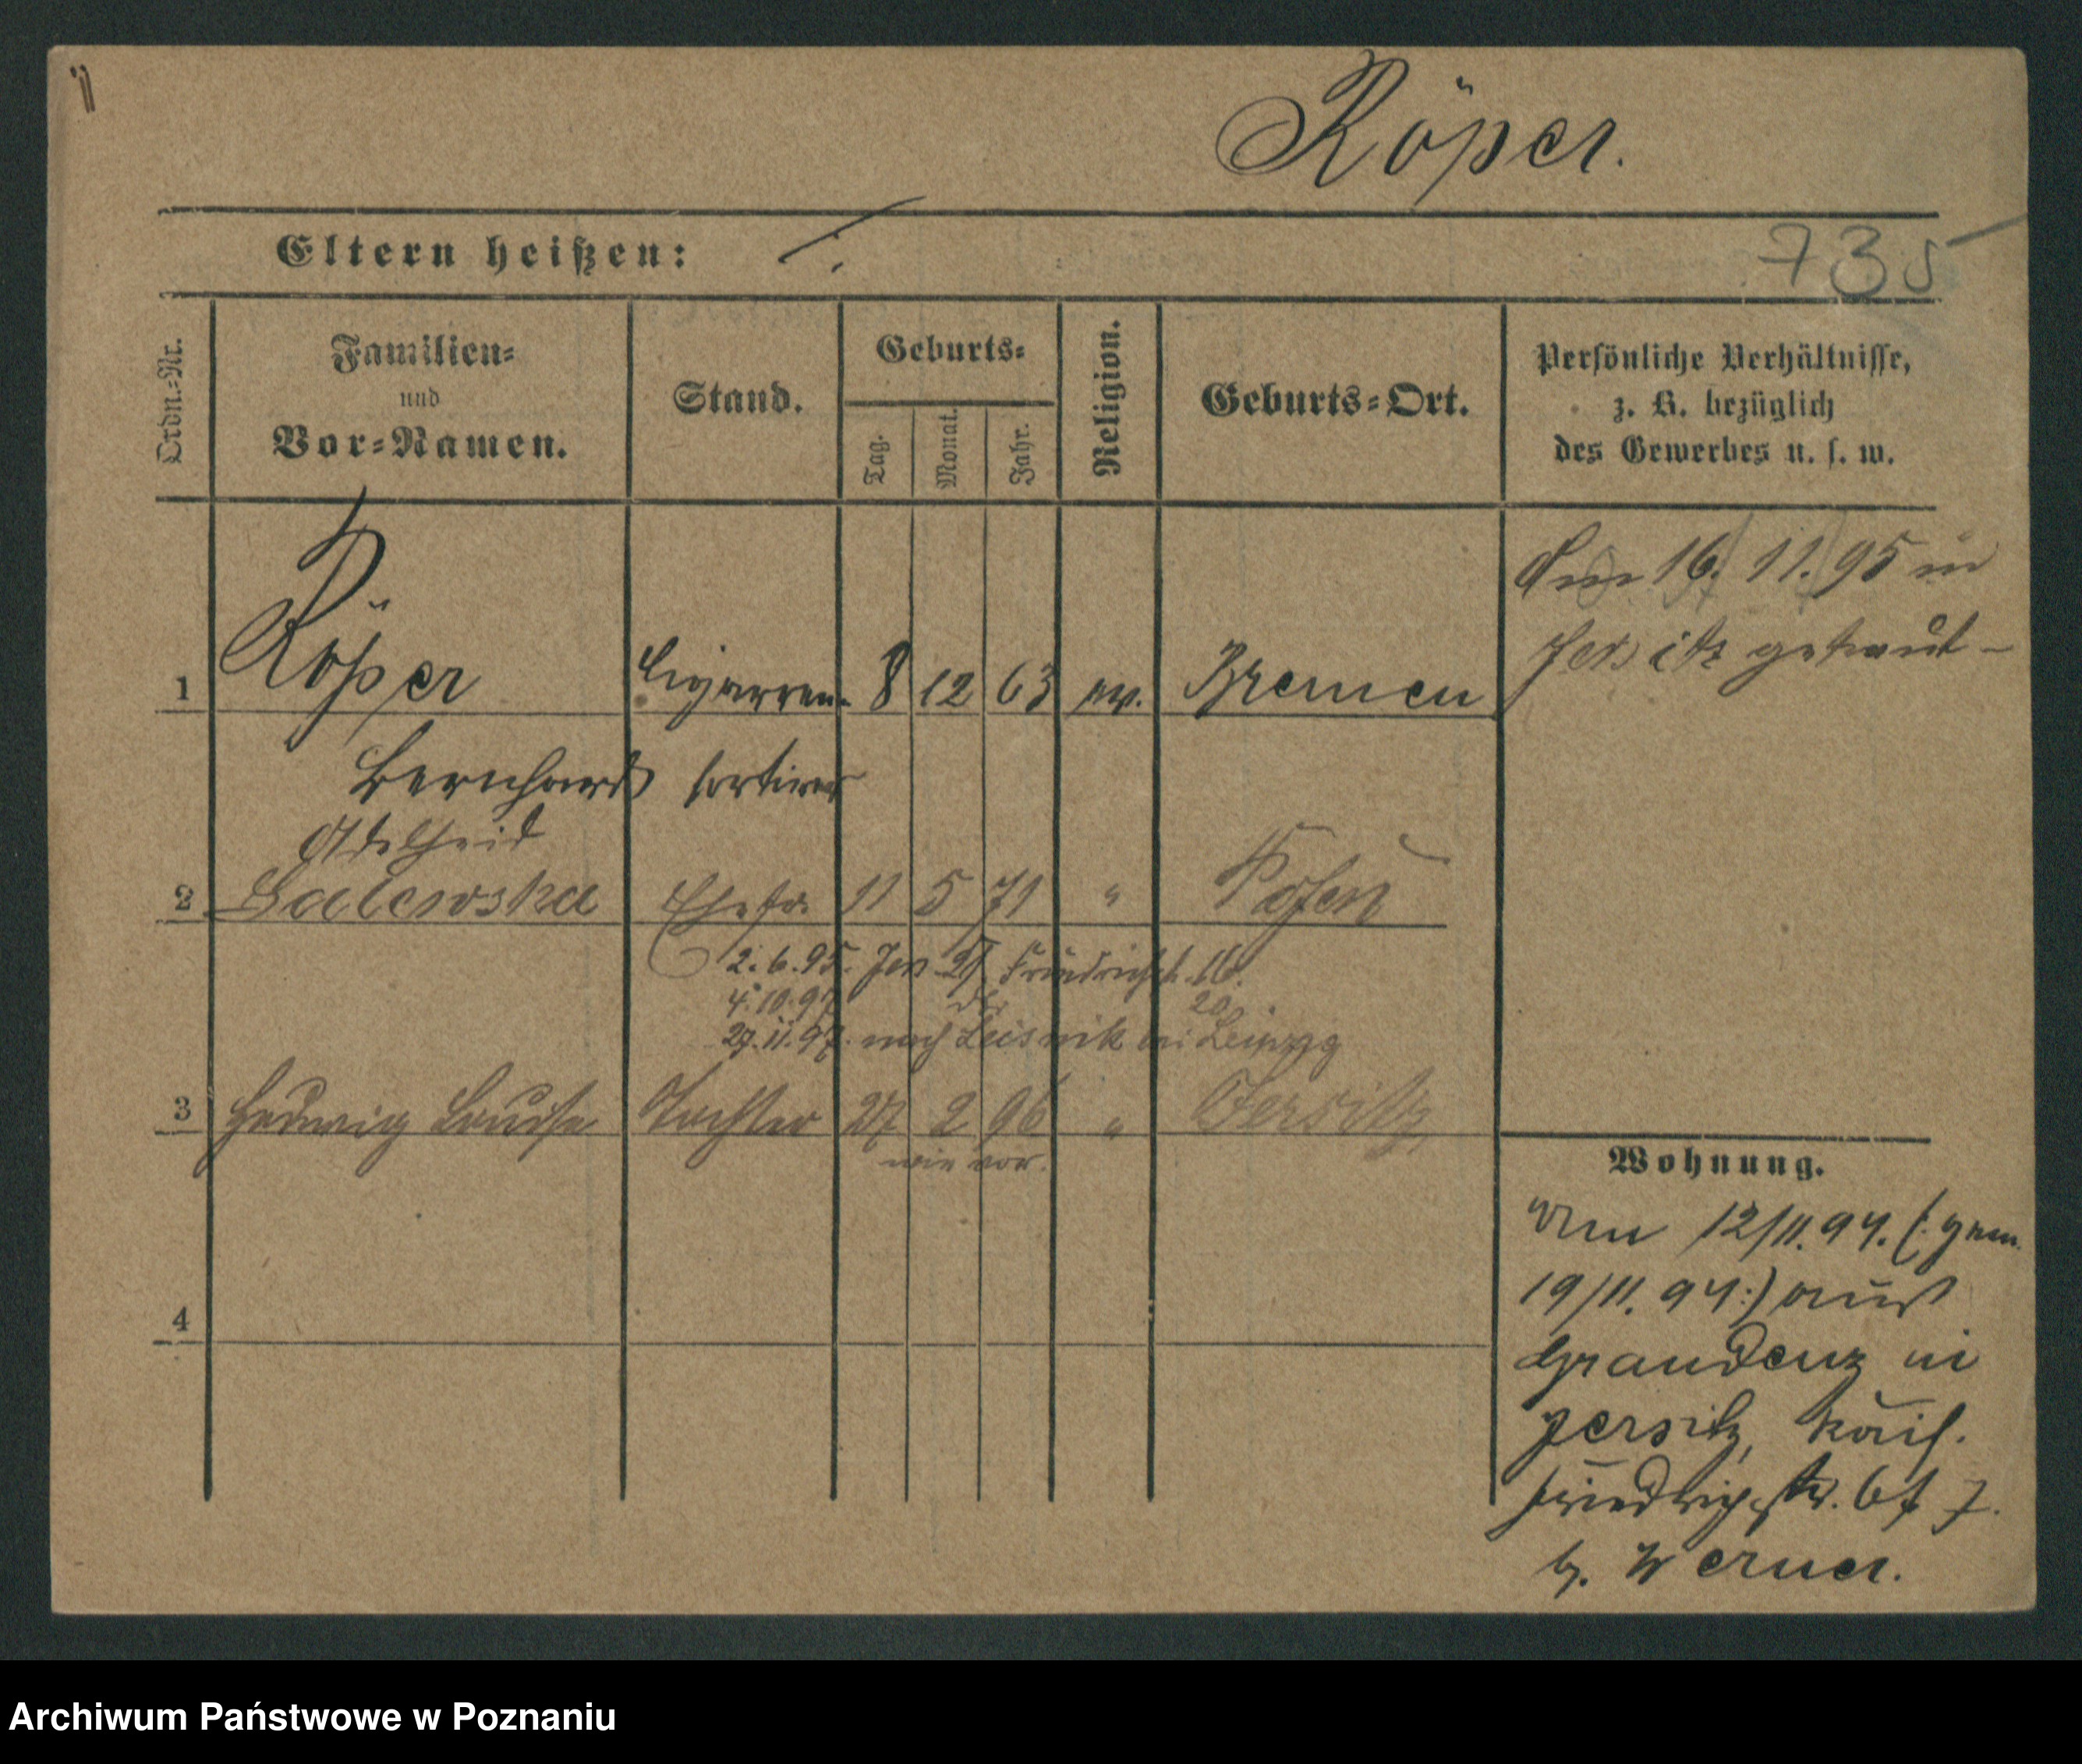 Röper.
Eltern heißen: ./.
735
Ordn.=Nr.
Familien=
und
Vor=Namen.
Stand.
Geburts=
Tag.
Monat.
Jahr.
Religion.
Geburts=Ort.
Persönliche Verhältnisse,
z. B. bezüglich
des Gewerbes u. s. w.
Am 16. 11. 95 in
Jersitz getraut –
1 Röper Cigarren- 8 12 63 ev. Bremen
Bernhard sortirer
Adelheid
2 Galewska Ehefr. 11 5 71 " Posen
2. 6. 95. Jers 27, Friedrichstr. 16.
4. 10. 97 20
27. 11. 97. nach Leisnik bei Leipzig
3 Hedwig Louise Tochter 27 2 96 " Jersitz
wie vor.
4
Wohnung.
Am 12/11. 94. (: gem.
19/11. 94:) aus
Graudenz in
Jersitz, Kais.
Friedrichstr. 67
b. Werner.
Archiwum Państwowe w Poznaniu